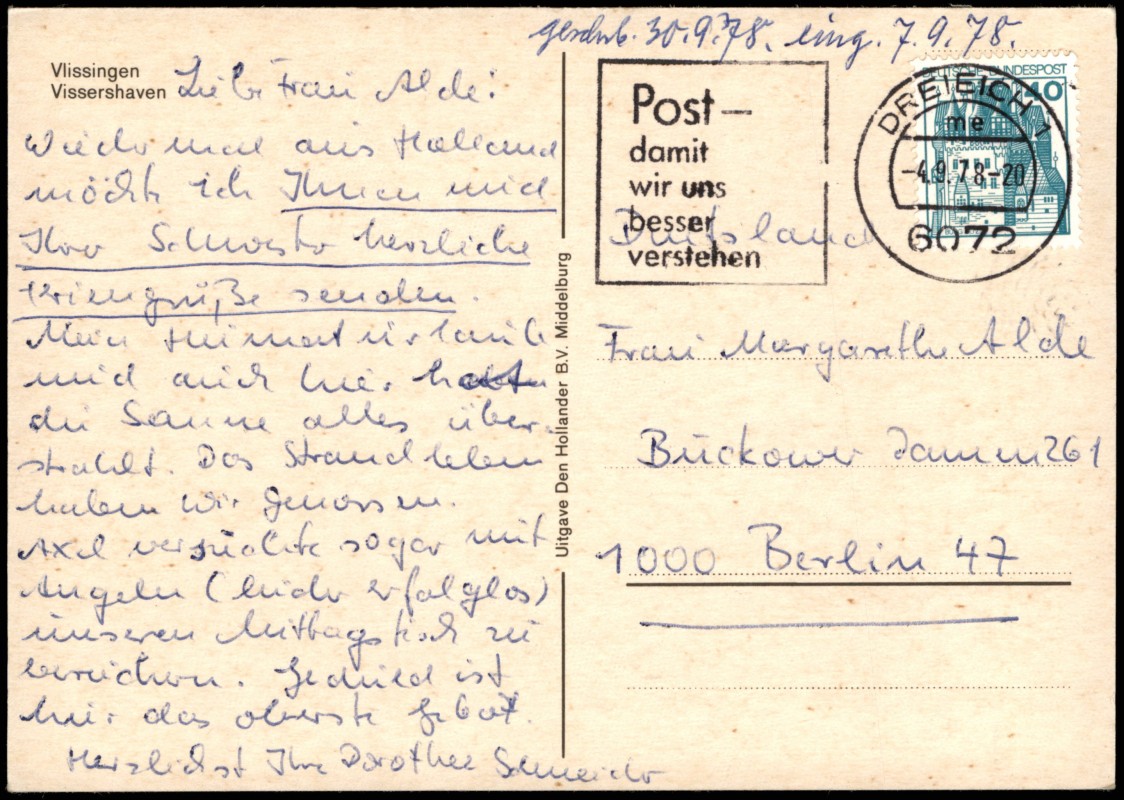 geschrb. 30.9.78. eing. 7.9.78.
Vlissingen
Vissershaven
Liebe Frau Alde!
Wieder mal aus Holland
möchte ich Ihnen und
Ihrer Schwester herzliche
Feriengrüße senden.
Mein Heimaturlaub
und auch hier hat
die Sonne alles über-
strahlt. Das Strandleben
haben wir genossen.
Axel versuchte sogar mit
Angeln (leider erfolglos)
unseren Mittagstisch zu
bereichern. Geduld ist
hier das oberste Gebot.
Herzlichst Ihre Dorothee Schneider
Uitgave Den Hollander B.V. Middelburg
Post –
damit
wir uns
besser
verstehen
DEUTSCHE BUNDESPOST
40
DREIEICH 1
me
-4.9.78-20
6072
Duitsland
Frau Margarethe Alde
Buckower Damm 261
1000 Berlin 47